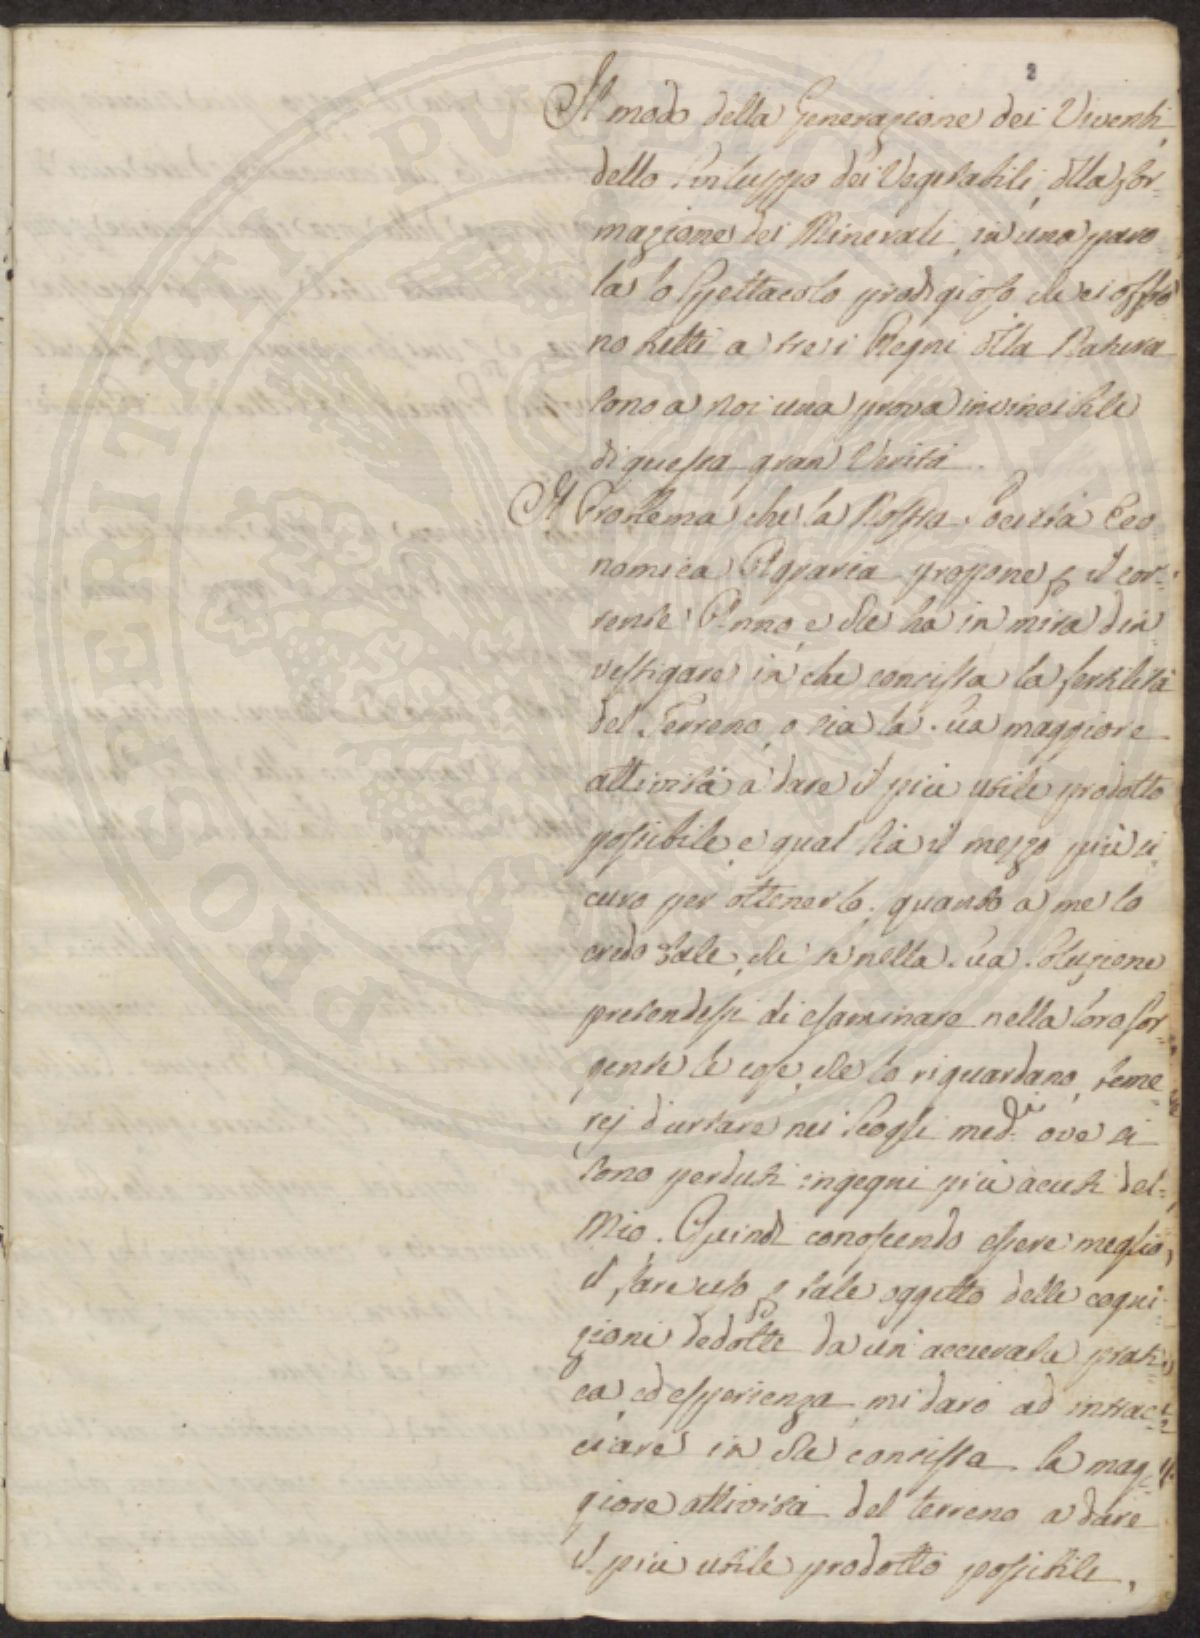 2
Il modo della Generazione dei Viventi,
dello Sviluppo dei Vegetabili, della for-
mazione dei Minerali, in una paro
la lo Spettacolo prodigioso, che ci offro
no tutti a tre i Regni della Natura
sono a noi una prova invincibile
di questa gran Verità.
Il Problema che la Nostra Società Eco
nomica Agraria propone per il cor-
rente Anno, e che ha in mira d'in
vestigare in che concista la fertilità
del Terreno, o sia la sua maggiore
attività a dare il più utile prodotto
possibile, e qual sia il mezzo più si
curo per ottenerlo, quanto a me lo
credo tale, che se nella sua Soluzione
pretendessi di esaminare nella loro sor-
gente le cose, che lo riguardano, teme
rej d'urtare nei Scogli med.mi ove si
sono perduti ingegni più acuti del
Mio. Quindi conoscendo essere meglio,
il fare uso per tale oggetto delle cogni-
zioni dedotte da un accurata prati
ca, ed esperienza, mi darò ad intrac-
ciare in che concista la mag-
giore attività del terreno a dare
il più utile prodotto possibile,
PROSPERITATI PVBLICAE